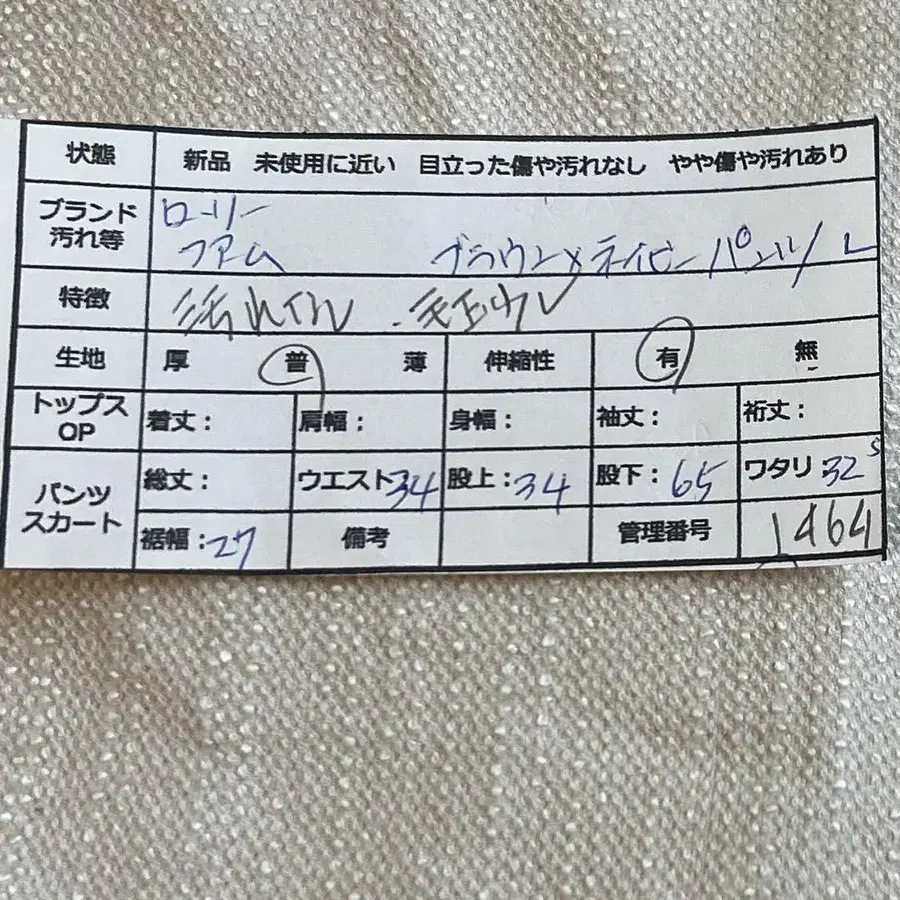 状態 新品 未使用に近い 目立った傷や汚れなし やや傷や汚れあり
ブランド ローリー
汚れ等 ファーム ブラウン×ネイビーパンツ/L
特徴
生地 厚 普 薄 伸縮性 有 無
トップス OP 着丈: 肩幅: 身幅: 袖丈: 裄丈:
パンツ スカート 総丈: ウエスト34 股上:34 股下:65 ワタリ:32 5
裾幅:27 備考 管理番号 1464